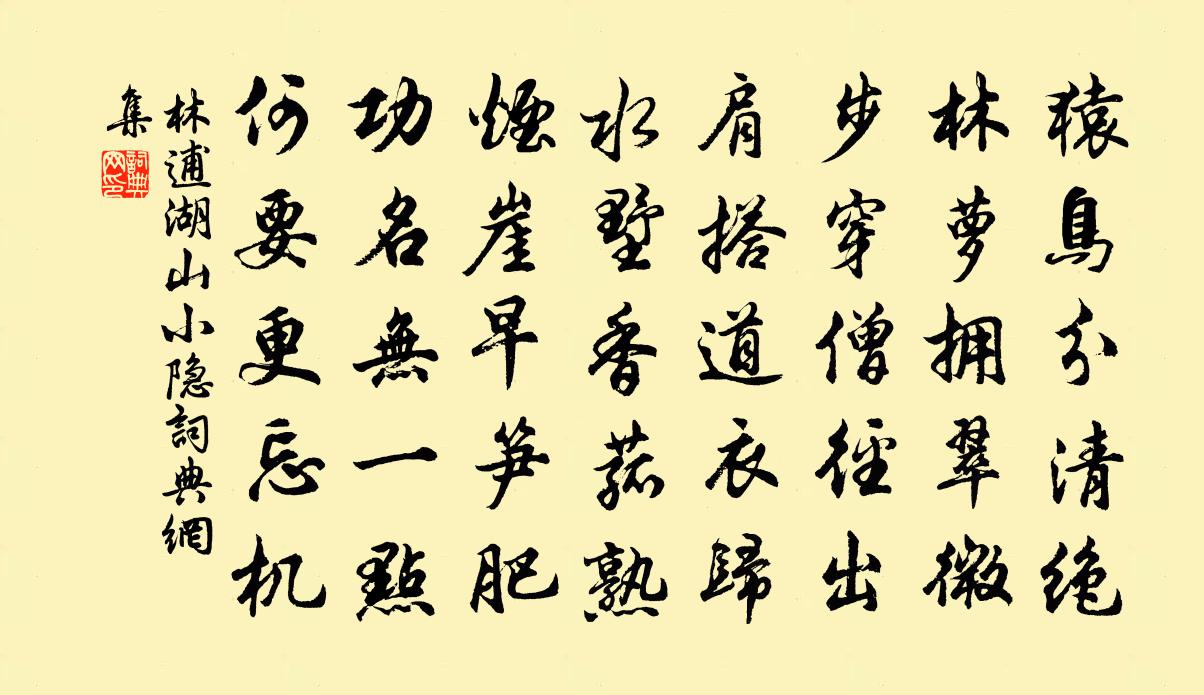 猿鳥分清絶
林萝拥翠微
步穿僧徑出
肩搭道衣歸
水墅香菰熟
煙崖早笋肥
功名無一點
何要更忘机
林逋湖山小隐詞典網
集
詞典
网印